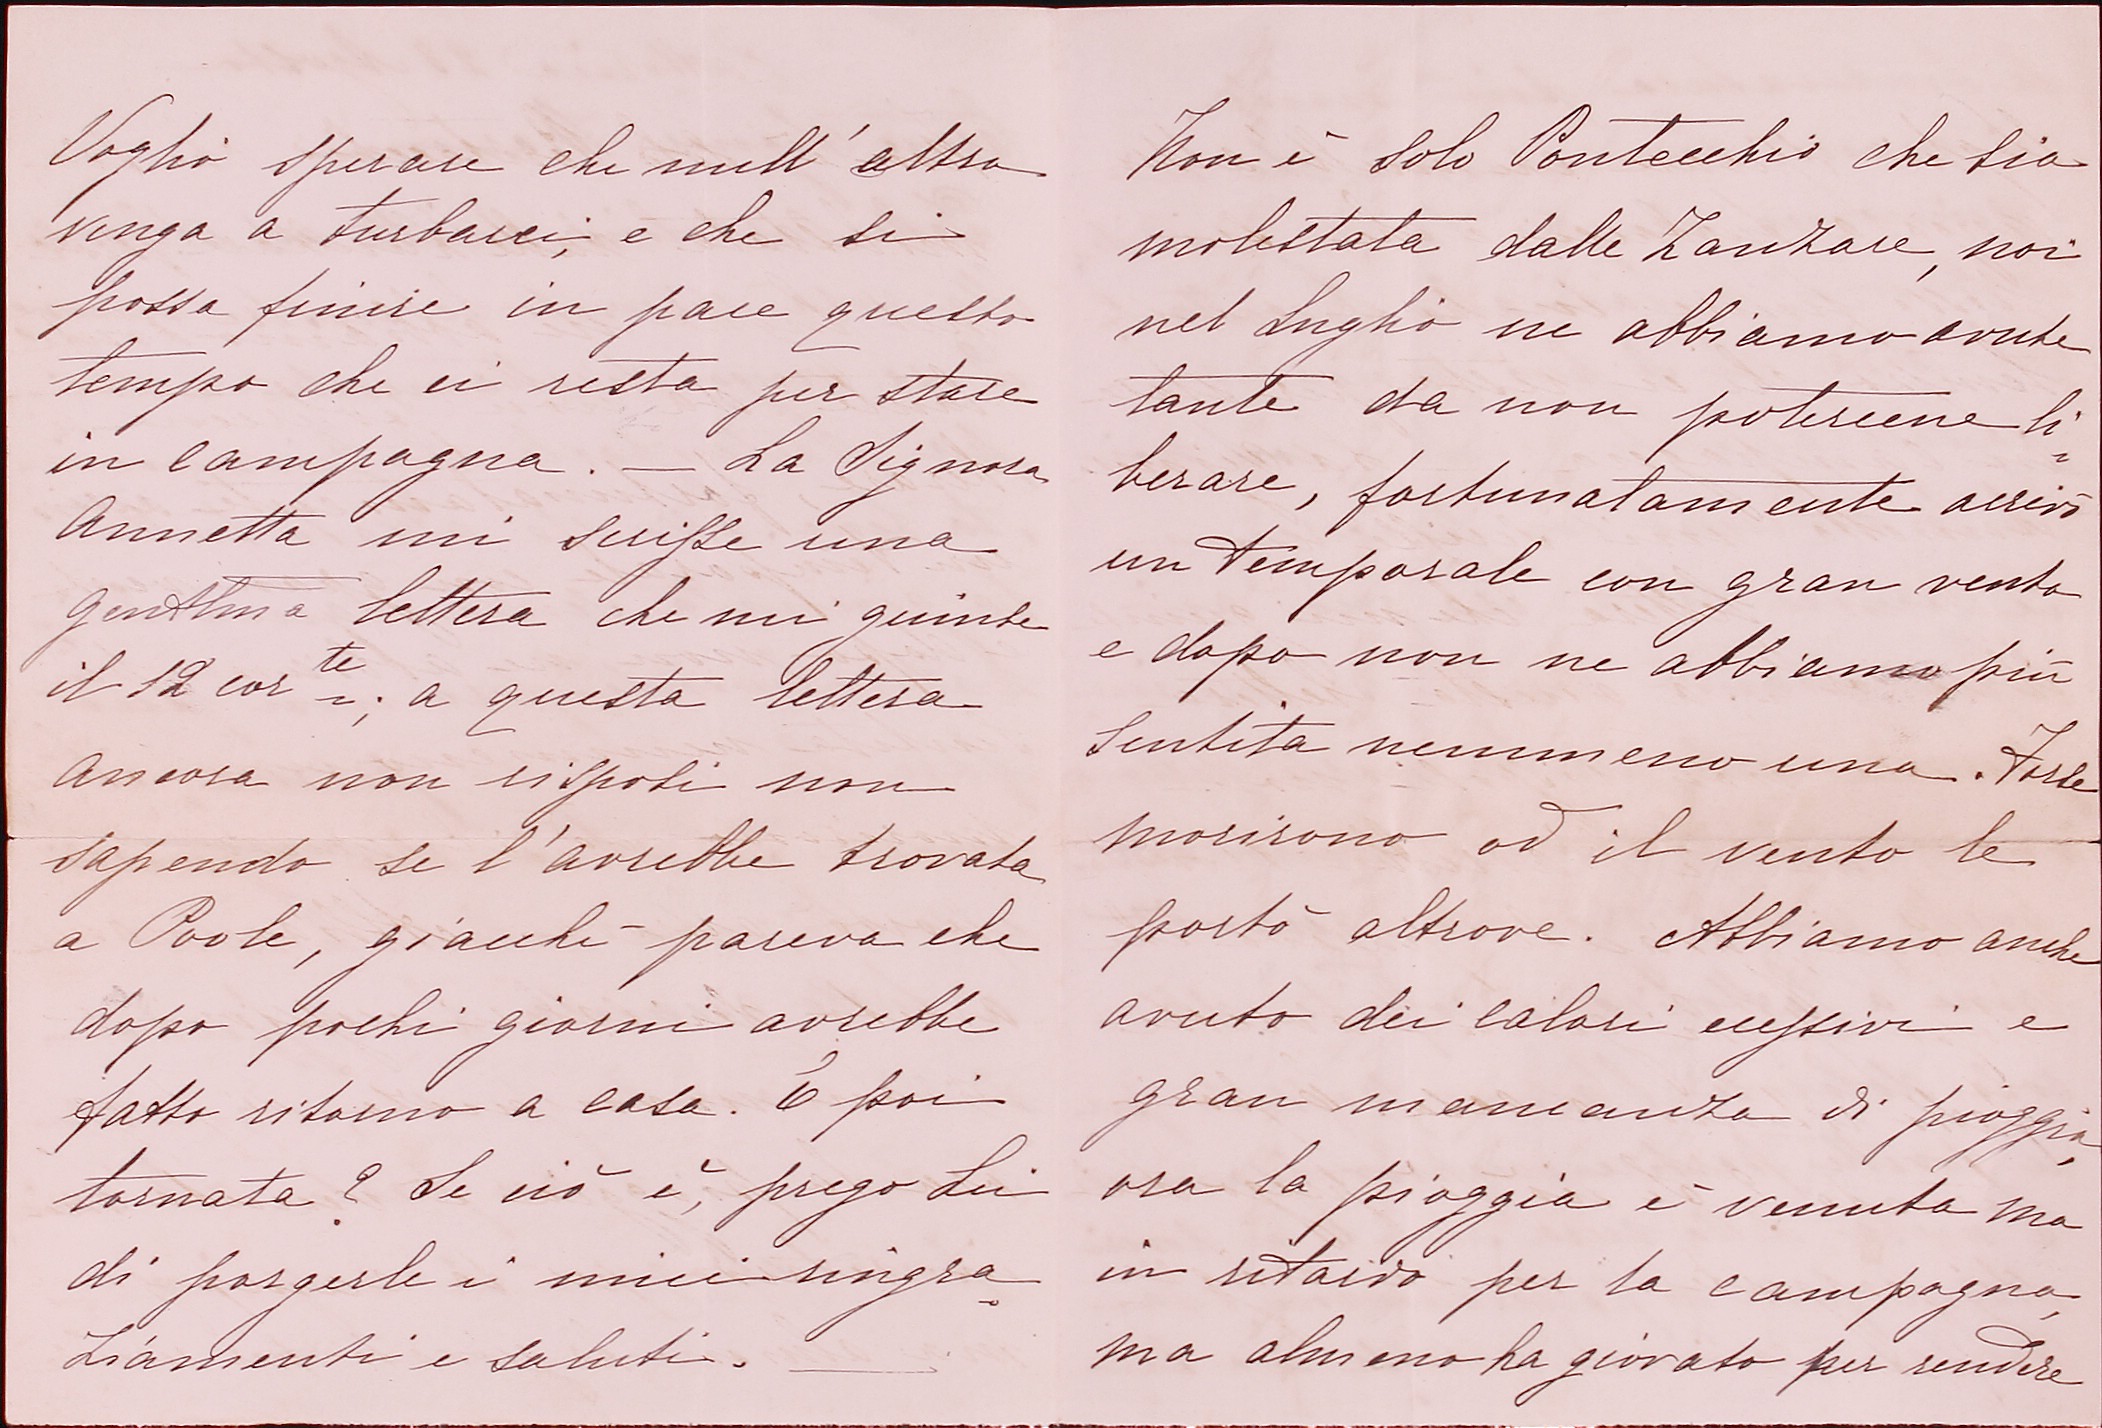 Voglio sperare che null'altro
venga a turbarci, e che si
possa finire in pace questo
tempo che ci resta per stare
in campagna. — La Signora
Annetta mi scrisse una
gentilma lettera che mi giunse
il 12 corte; a questa lettera
ancora non risposi non
sapendo se l'avrebbe trovata
a Poole, giacchè pareva che
dopo pochi giorni avrebbe
fatto ritorno a casa. È poi
tornata? Se ciò è, prego Lei
di porgerle i miei ringra=
ziamenti e saluti. —
Non è solo Pontecchio che sia
molestata dalle Zanzare, noi
nel Luglio ne abbiamo avute
tante da non potercene li=
berare, fortunatamente arrivò
un temporale con gran vento
e dopo non ne abbiamo più
sentita nemmeno una. Forse
morirono od il vento le
portò altrove. Abbiamo anche
avuto dei calori eccessivi e
gran mancanza di pioggia,
ora la pioggia è venuta ma
in ritardo per la campagna,
ma almeno ha giovato per rendere